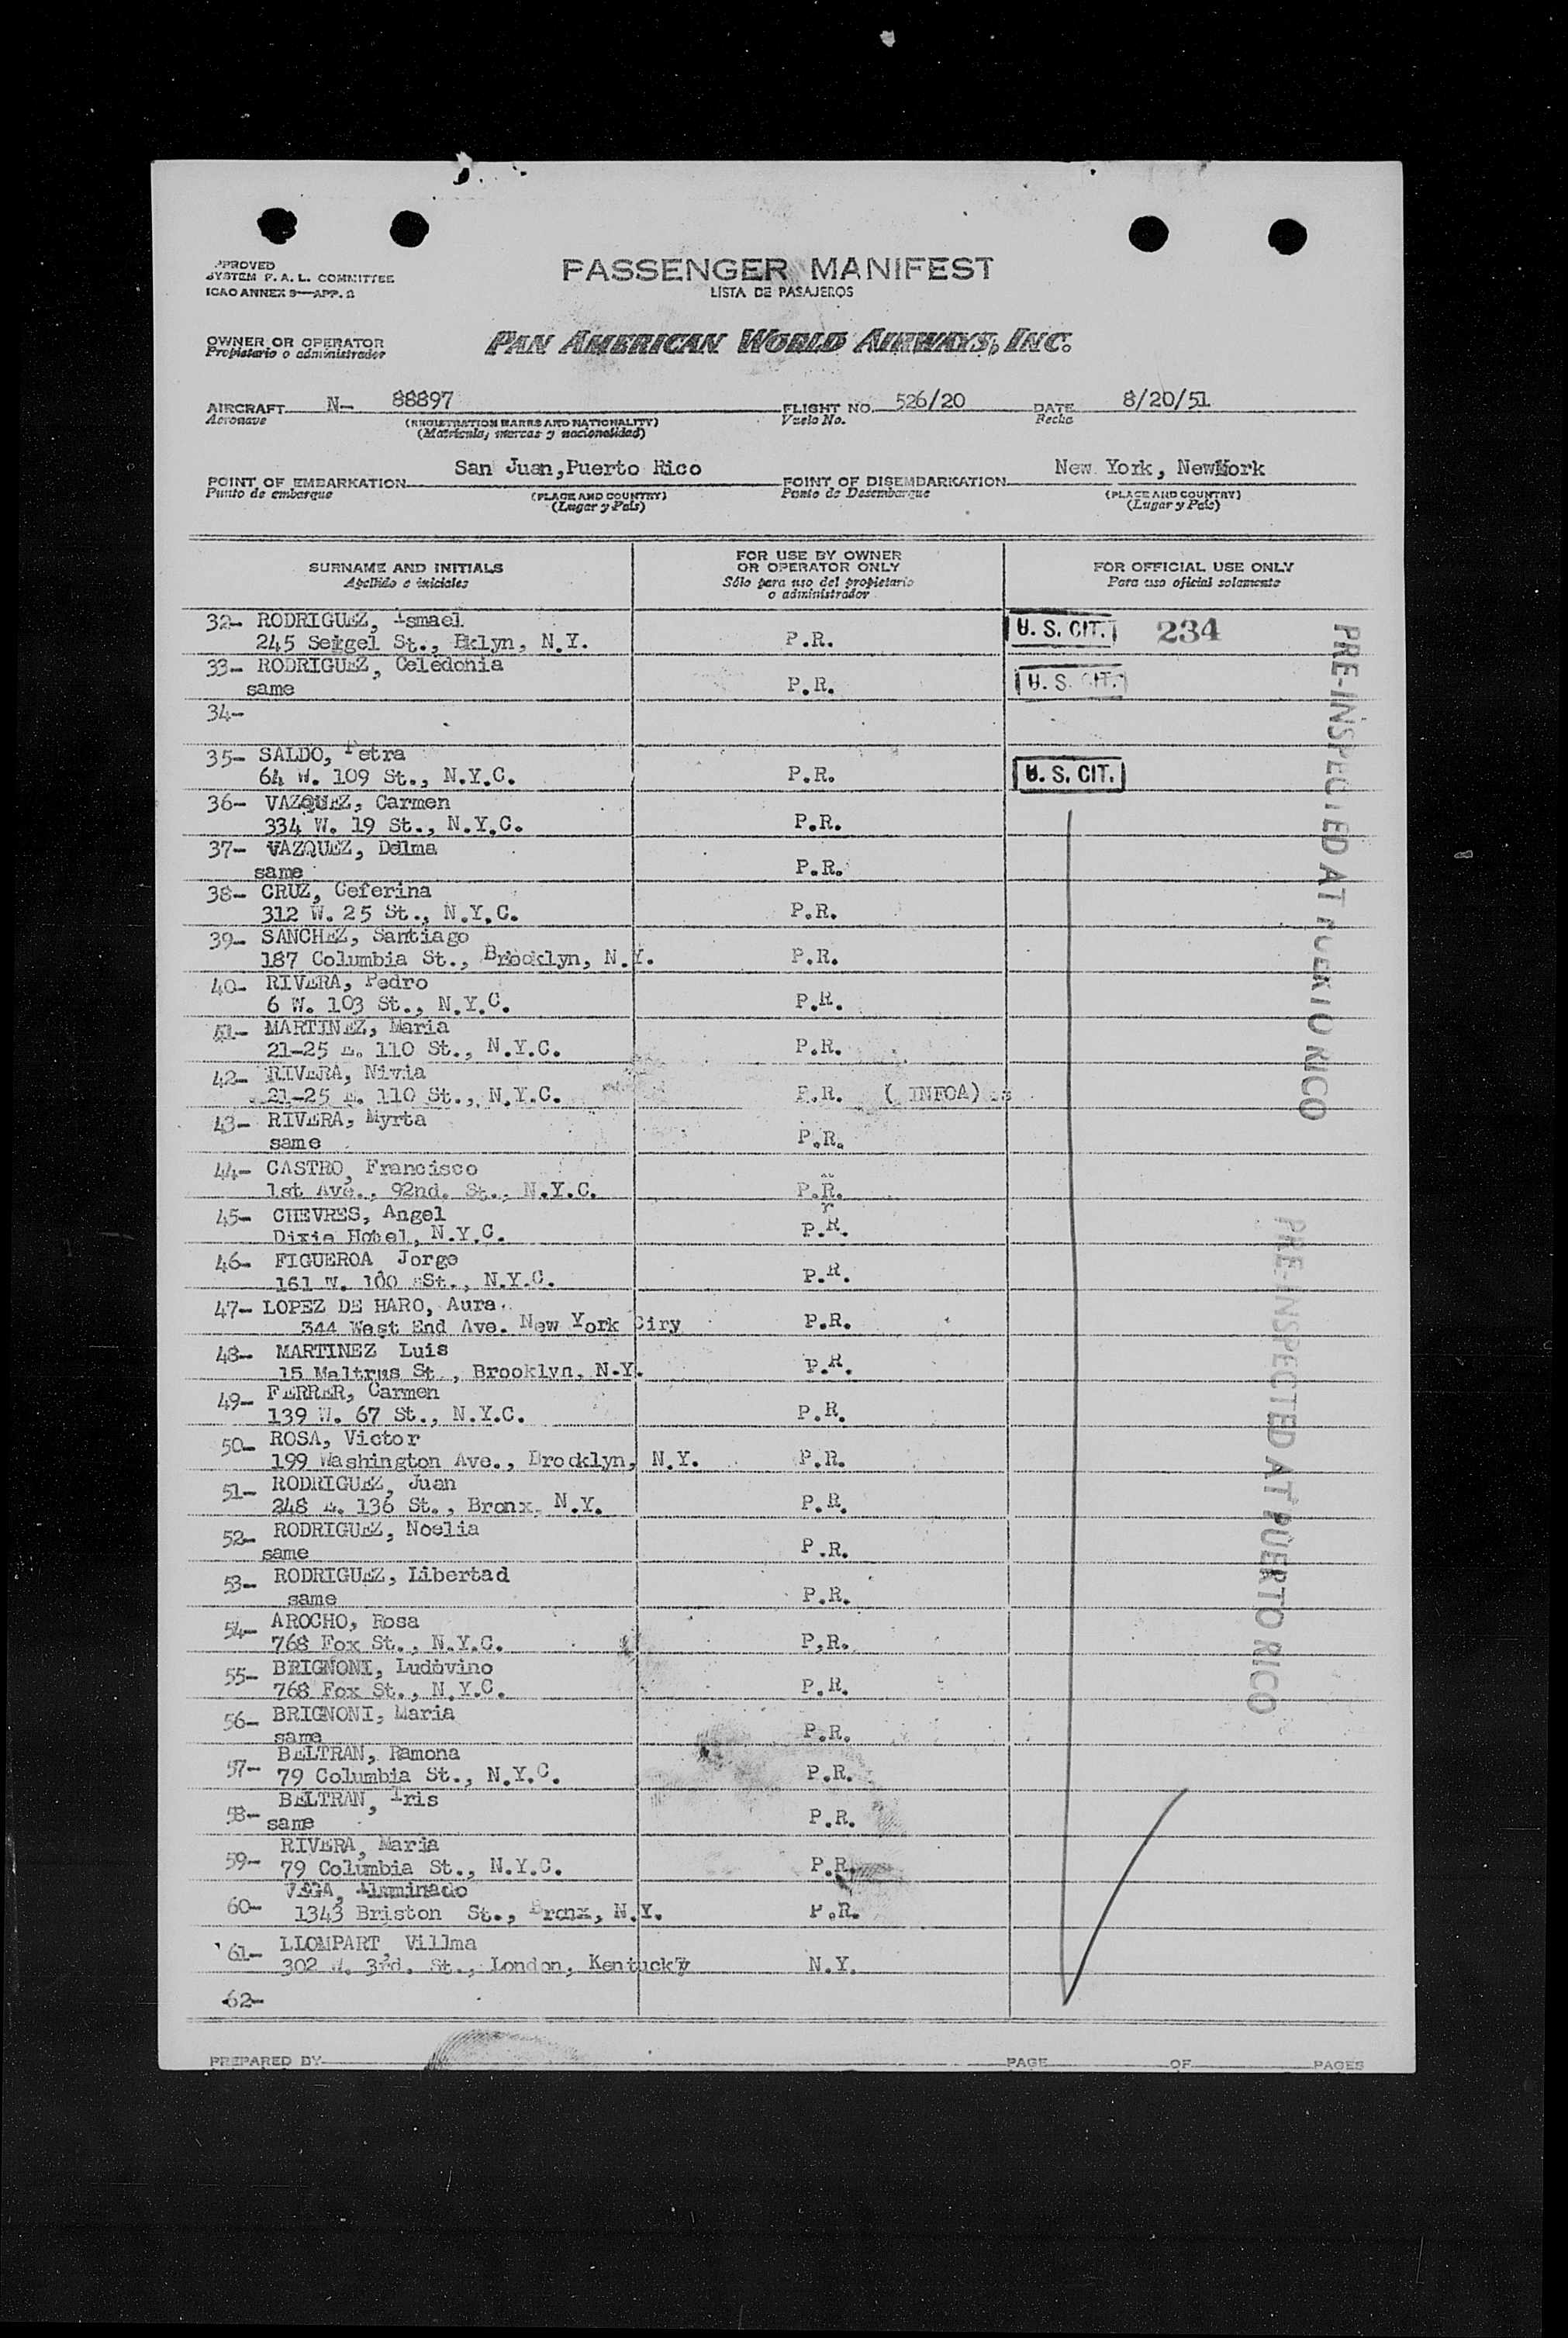 PPROVED
SYSTEM F. A. L. COMMITTEE
ICAO ANNEX 9—APP. 2
PASSENGER MANIFEST
LISTA DE PASAJEROS
OWNER OR OPERATOR
Propietario o administrador
PAN AMERICAN WORLD AIRWAYS, INC.
AIRCRAFT N- 88897 FLIGHT NO. 526/20 DATE 8/20/51
Aeronave (REGISTRATION MARKS AND NATIONALITY) Vuelo No. Fecha
(Matrícula, marcas y nacionalidad)
POINT OF EMBARKATION San Juan, Puerto Rico POINT OF DISEMBARKATION New York, New York
Punto de embarque (PLACE AND COUNTRY) Punto de Desembarque (PLACE AND COUNTRY)
(Lugar y País) (Lugar y País)
SURNAME AND INITIALS FOR USE BY OWNER OR OPERATOR ONLY FOR OFFICIAL USE ONLY
Apellido e iniciales Sólo para uso del propietario o administrador Para uso oficial solamente
32- RODRIGUEZ, Ismael U. S. CIT. 234
245 St., Bklyn, N.Y. P.R.
33- RODRIGUEZ, Celedonia
same P.R. U. S. CIT.
34-
35- SALDO, Petra
64 W. 109 St., N.Y.C. P.R. U. S. CIT.
36- VAZQUEZ, Carmen
334 W. 19 St., N.Y.C. P.R.
37- VAZQUEZ, Delma
same P.R.
38- CRUZ, Ceferina
312 W. 25 St., N.Y.C. P.R.
39- SANCHEZ, Santiago
187 Columbia St., Brooklyn, N.Y. P.R.
40- RIVERA, Pedro
6 W. 103 St., N.Y.C. P.R.
41- MARTINEZ, Maria
21-25 E. 110 St., N.Y.C. P.R.
42- RIVERA, Nivia
21-25 E. 110 St., N.Y.C. P.R. ( INFOA)
43- RIVERA, Myrta
same P.R.
44- CASTRO, Francisco
1st Ave., 92nd. St., N.Y.C. P.R.
45- CHEVRES, Angel
Dixie Hotel, N.Y.C. P.R.
46- FIGUEROA Jorge
161 W. 100 St., N.Y.C. P.R.
47- LOPEZ DE HARO, Aura
344 West End Ave. New York Ciry P.R.
48- MARTINEZ Luis
15 Maltrus St., Brooklyn, N.Y. P.R.
49- FERRER, Carmen
139 W. 67 St., N.Y.C. P.R.
50- ROSA, Victor
199 Washington Ave., Brooklyn, N.Y. P.R.
51- RODRIGUEZ, Juan
248 E. 136 St., Bronx, N.Y. P.R.
52- RODRIGUEZ, Noelia
same P.R.
53- RODRIGUEZ, Libertad
same P.R.
54- AROCHO, Rosa
768 Fox St., N.Y.C. P.R.
55- BRIGNONI, Ludovino
768 Fox St., N.Y.C. P.R.
56- BRIGNONI, Maria
same P.R.
57- BELTRAN, Ramona
79 Columbia St., N.Y.C. P.R.
58- BELTRAN, Iris
same P.R.
59- RIVERA, Maria
79 Columbia St., N.Y.C. P.R.
60- VEGA,
1343 Briston St., Bronx, N.Y. P.R.
61- LLOMPART, Villma
302 W. 3rd. St., London, Kentucky N.Y.
62-
PREPARED BY PAGE OF PAGES
PRE-INSPECTED AT PUERTO RICO
PRE-INSPECTED AT PUERTO RICO